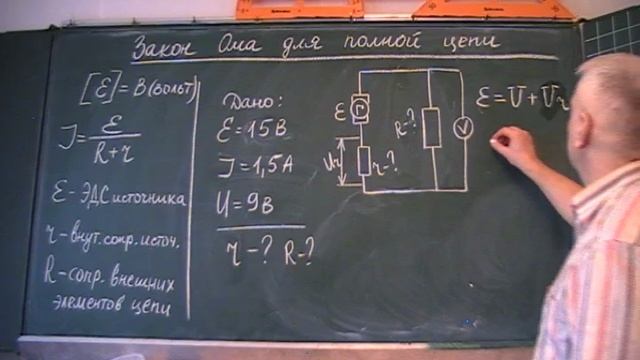 Закон Ома для полной цепи
[Ɛ] = В (вольт)
J = Ɛ / (R + r)
Ɛ - ЭДС источника
r - внут. сопр. источ.
R - сопр. внешних
элементов цепи
Дано:
Ɛ = 15 В
J = 1,5 А
U = 9 В
r - ? R - ?
Ɛ
Г
Ur
r - ?
R - ?
V
Ɛ = U + Ur